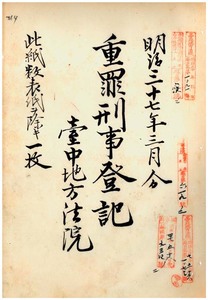 明治三十七年三月分
重罪刑事登記
臺中地方法院
此紙数表紙ヲ除キ一枚